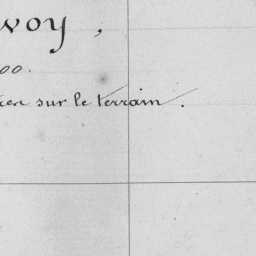 voy,
00.
sur le terrain.